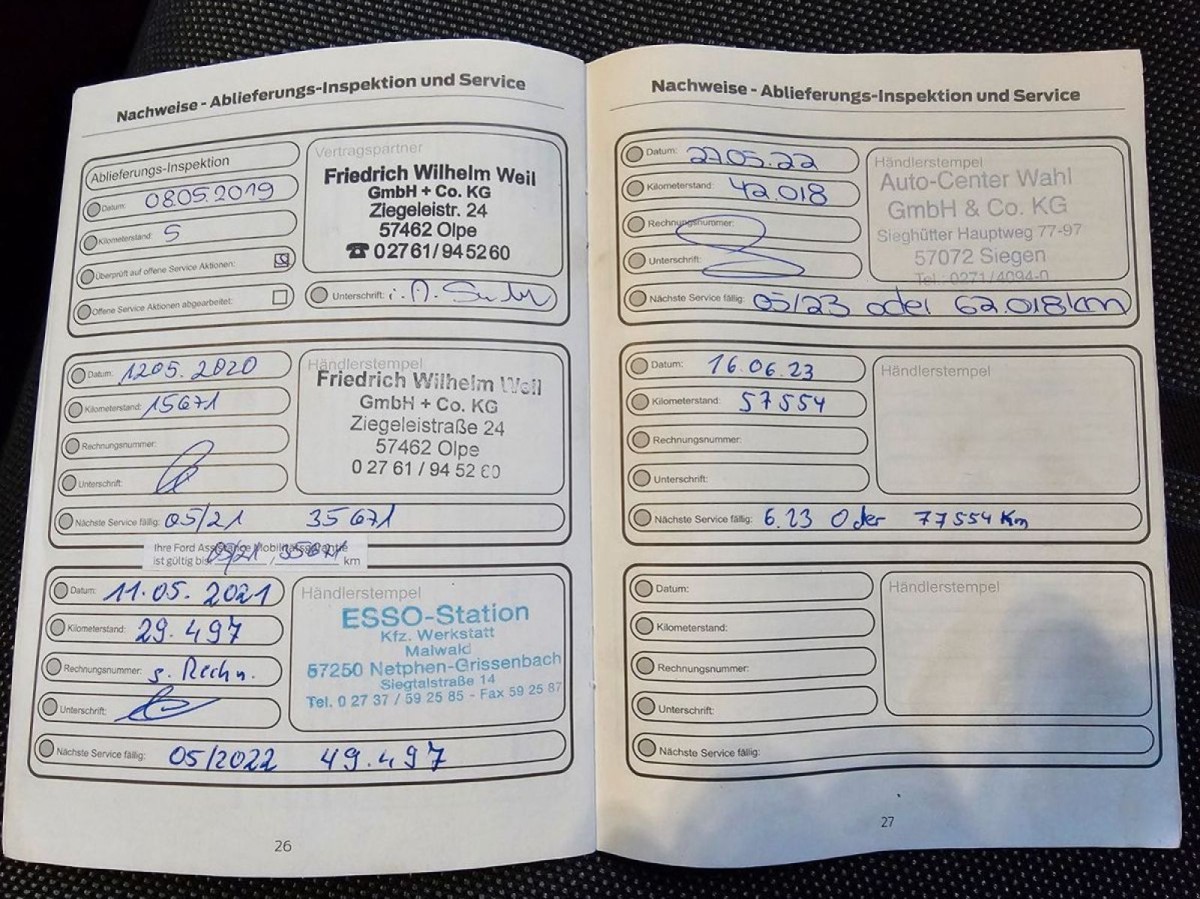 Nachweise - Ablieferungs-Inspektion und Service
Ablieferungs-Inspektion
Datum: 08.05.2019
Kilometerstand: 5
Überprüft auf offene Service Aktionen:
Offene Service Aktionen abgearbeitet:
Vertragspartner
Friedrich Wilhelm Weil
GmbH + Co. KG
Ziegeleistr. 24
57462 Olpe
☎ 02761/945260
Unterschrift: i.A.
Datum: 1205.2020
Kilometerstand: 15671
Rechnungsnummer:
Unterschrift:
Händlerstempel
Friedrich Wilhelm Weil
GmbH + Co. KG
Ziegeleistraße 24
57462 Olpe
0 27 61 / 94 52 60
Nächste Service fällig: 05/21 35671
Ihre Ford Assistance Mobilitätsgarantie
ist gültig bis 05/21 / 35671 km
Datum: 11.05.2021
Kilometerstand: 29.497
Rechnungsnummer: s. Rechn.
Unterschrift:
Händlerstempel
ESSO-Station
Kfz. Werkstatt
Maiwald
57250 Netphen-Grissenbach
Siegtalstraße 14
Tel. 0 27 37 / 59 25 85 - Fax 59 25 87
Nächste Service fällig: 05/2022 49.497
26
Nachweise - Ablieferungs-Inspektion und Service
Datum: 27.05.22
Kilometerstand: 42.018
Rechnungsnummer:
Unterschrift:
Händlerstempel
Auto-Center Wahl
GmbH & Co. KG
Sieghütter Hauptweg 77-97
57072 Siegen
Tel.: 0271/4094-0
Nächste Service fällig: 05/23 oder 62.018km
Datum: 16.06.23
Kilometerstand: 57554
Rechnungsnummer:
Unterschrift:
Händlerstempel
Nächste Service fällig: 6.23 Oder 77554 Km
Datum:
Kilometerstand:
Rechnungsnummer:
Unterschrift:
Händlerstempel
Nächste Service fällig:
27